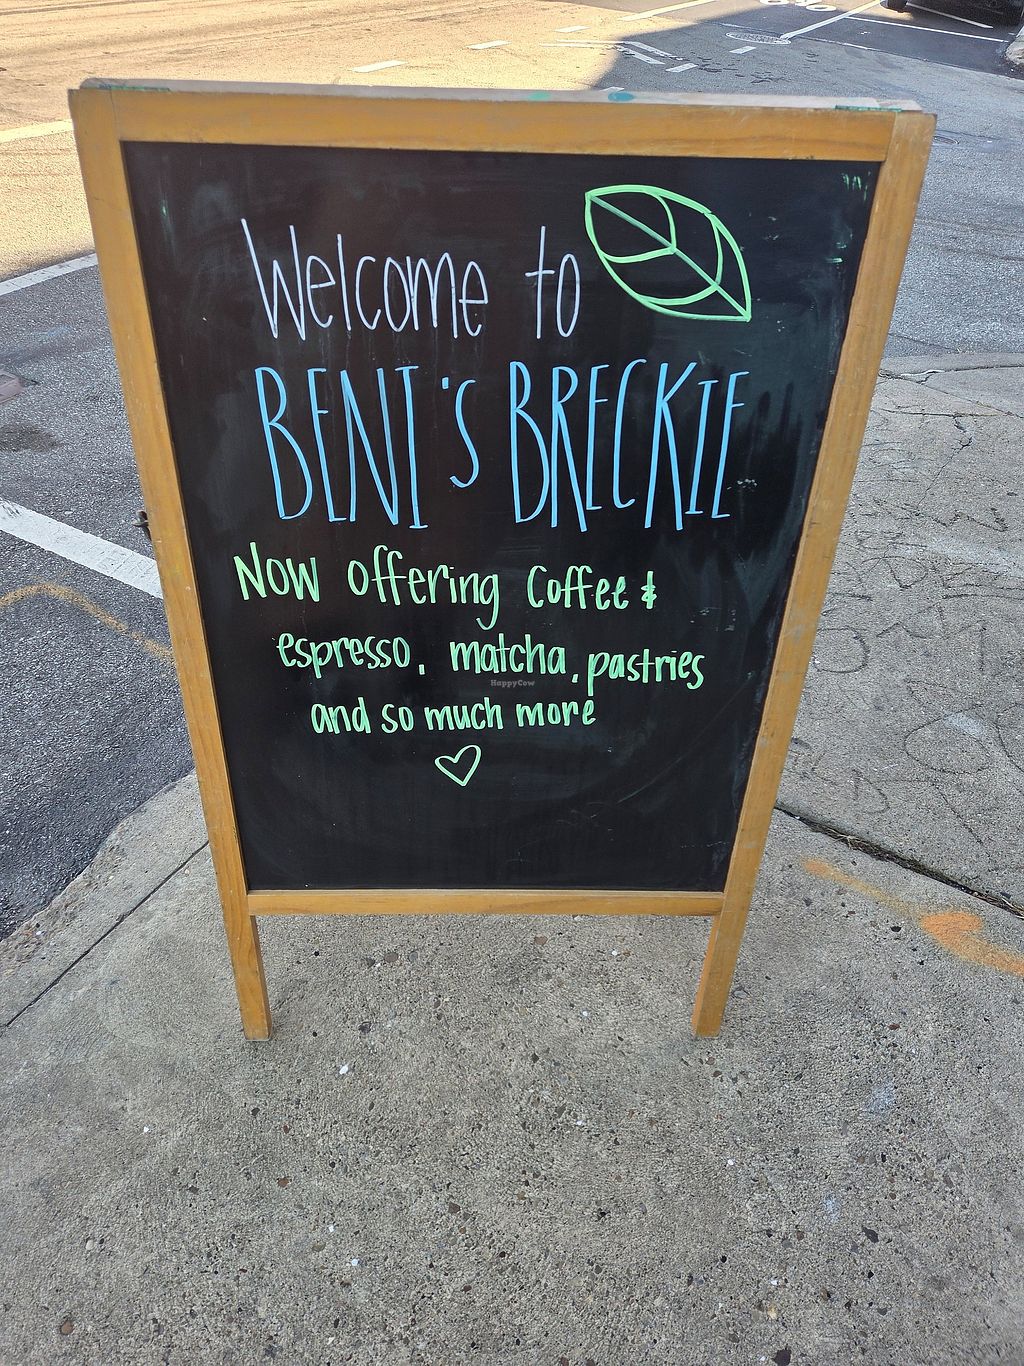 Welcome to
BENI's BRECKIE
NOW offering Coffee &
espresso, matcha, pastries
HappyCow
and so much more